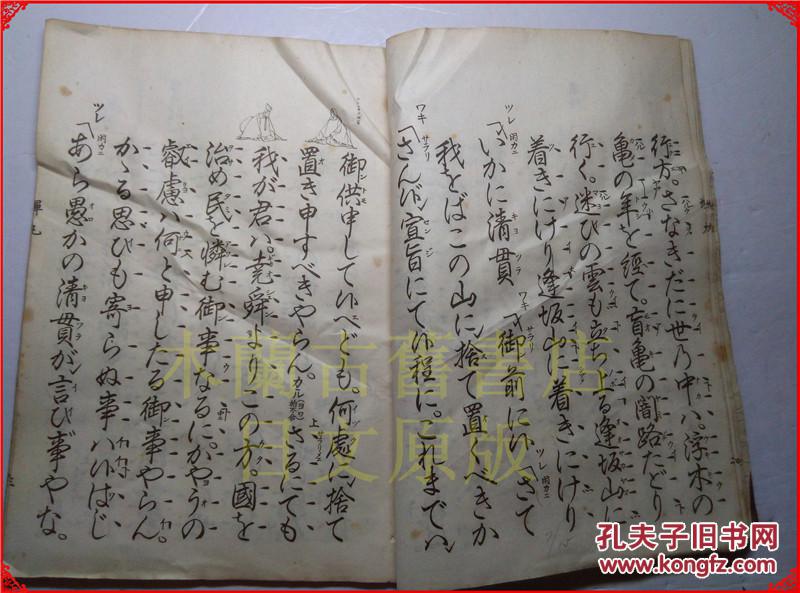 行方。さなきだに世乃中ハ。浮木の
亀の年を經て。盲亀の闇路たどり
行く。迷ひの雲も立ちのぼる逢坂山に
着きにけり逢坂山に着きにけり
ツレ いかに清貫 ワキ サラリ 御前に候 ツレ さて
我をばこの山に捨て置くべきか
ワキ サラリ さん候宣旨にて候程に。これまでハ
御供申して候へども。何處に捨て
置き申すべきやらん。カヽル 上 さるにても
我が君ハ。堯舜よりこの方。國を
治め民を憐む御事なるに。かやうの
叡慮ハ何と申したる御事やらん。
かゝる思ひも寄らぬ事ハ候はじ
ツレ あら愚かの清貫が言ひ事やな。
木蘭古舊書店
日文原版
孔夫子旧书网
www.kongfz.com